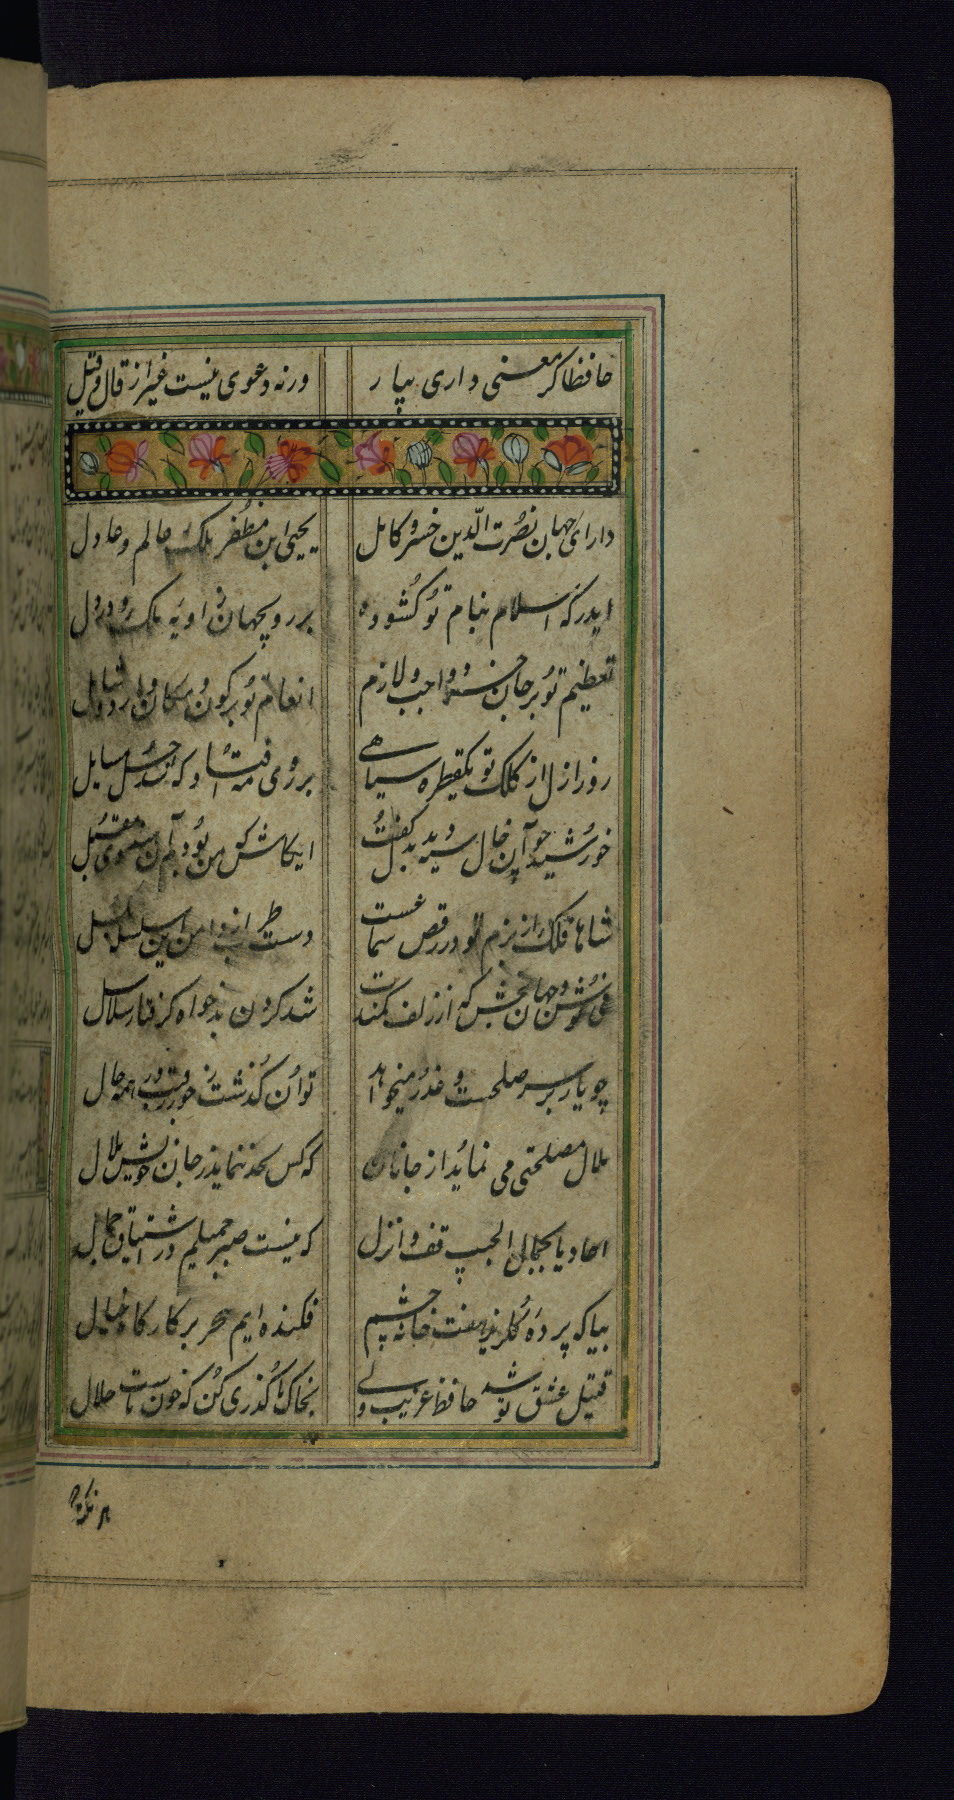 حافظا گر معنی داری بیار ورنه دعوی نیست غیر از قال و قیل
دارای جهان نصرت الدین خسرو کامل یحیی ابن مظفر ملک عالم و عادل
ایدرگه اسلام پناه تو گشوده بر روی جهان روزنه
تعظیم تو بر جان خرد واجب و لازم انعام تو بر کون و مکان
روز ازل از کلک تو یکقطره سیاهی بر روی مه افتاد که شد حل مسایل
خورشید چو آن خال سیه دید بدل گفت ایکاش که من بودم آن مقبل
شاها فلک از بزم تو در رقص سماعست دست طرب از دامن این سلسله مگسل
می نوش و جهان بخش که از زلف کمندت شد گردن بدخواه گرفتار سلاسل
چو یار بر سر صلحست و عذر میخواهد توان گذشت ز جور رقیب در همه حال
ملال مصلحتی می نماید از جانان که کس بجد ننماید ز جان خویش ملال
احادیا بجمال الحبیب قف وانزل که نیست صبر جمیلم در اشتیاق جمال
بیا که پرده گلریز هفت خانه چشم فکنده ایم بر کارگاه خیال
قتیل عشق تو شد حافظ غریب ولی بخاک ما گذری کن که خون مات حلال